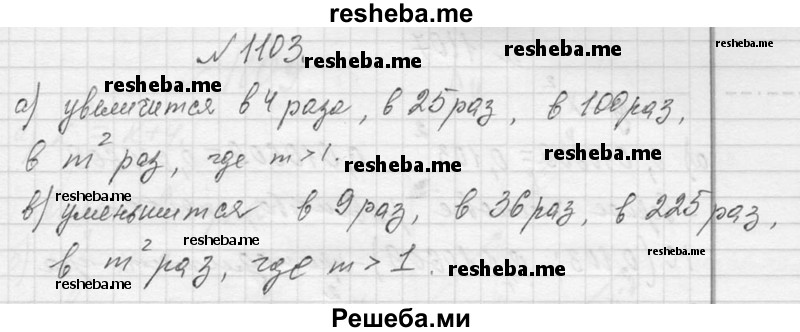 resheba.me
N 1103.
resheba.me
resheba.me
resheba.me
а) увеличится в 4 раза, в 25 раз, в 100 раз,
в m² раз, где m > 1.
resheba.me
resheba.me
в) уменьшится в 9 раз, в 36 раз, в 225 раз,
resheba.me
resheba.me
в m² раз, где m > 1.
resheba.me
resheba.me
Решеба.ми